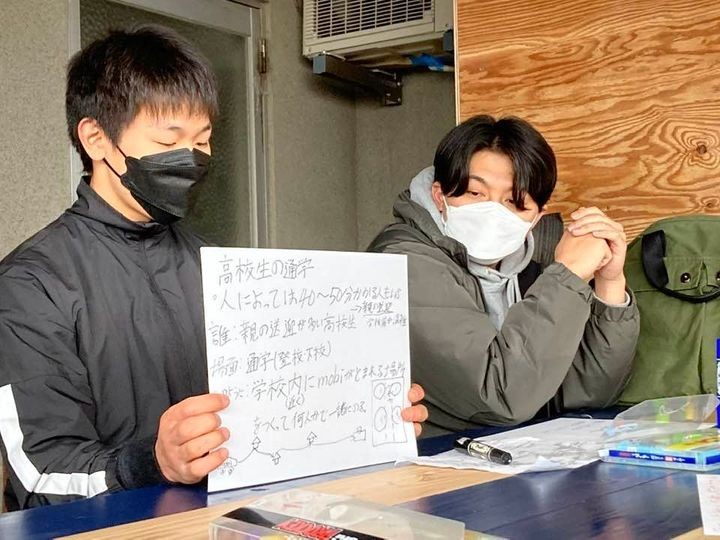 高校生の通学
・人によっては40〜50分かかる人もいる
→親の送迎
誰：親の送迎が多い高校生
場面：通学(登校下校)
学校内にmobiがとまれる場所
(近く)
をつくって何人かで一緒にのる